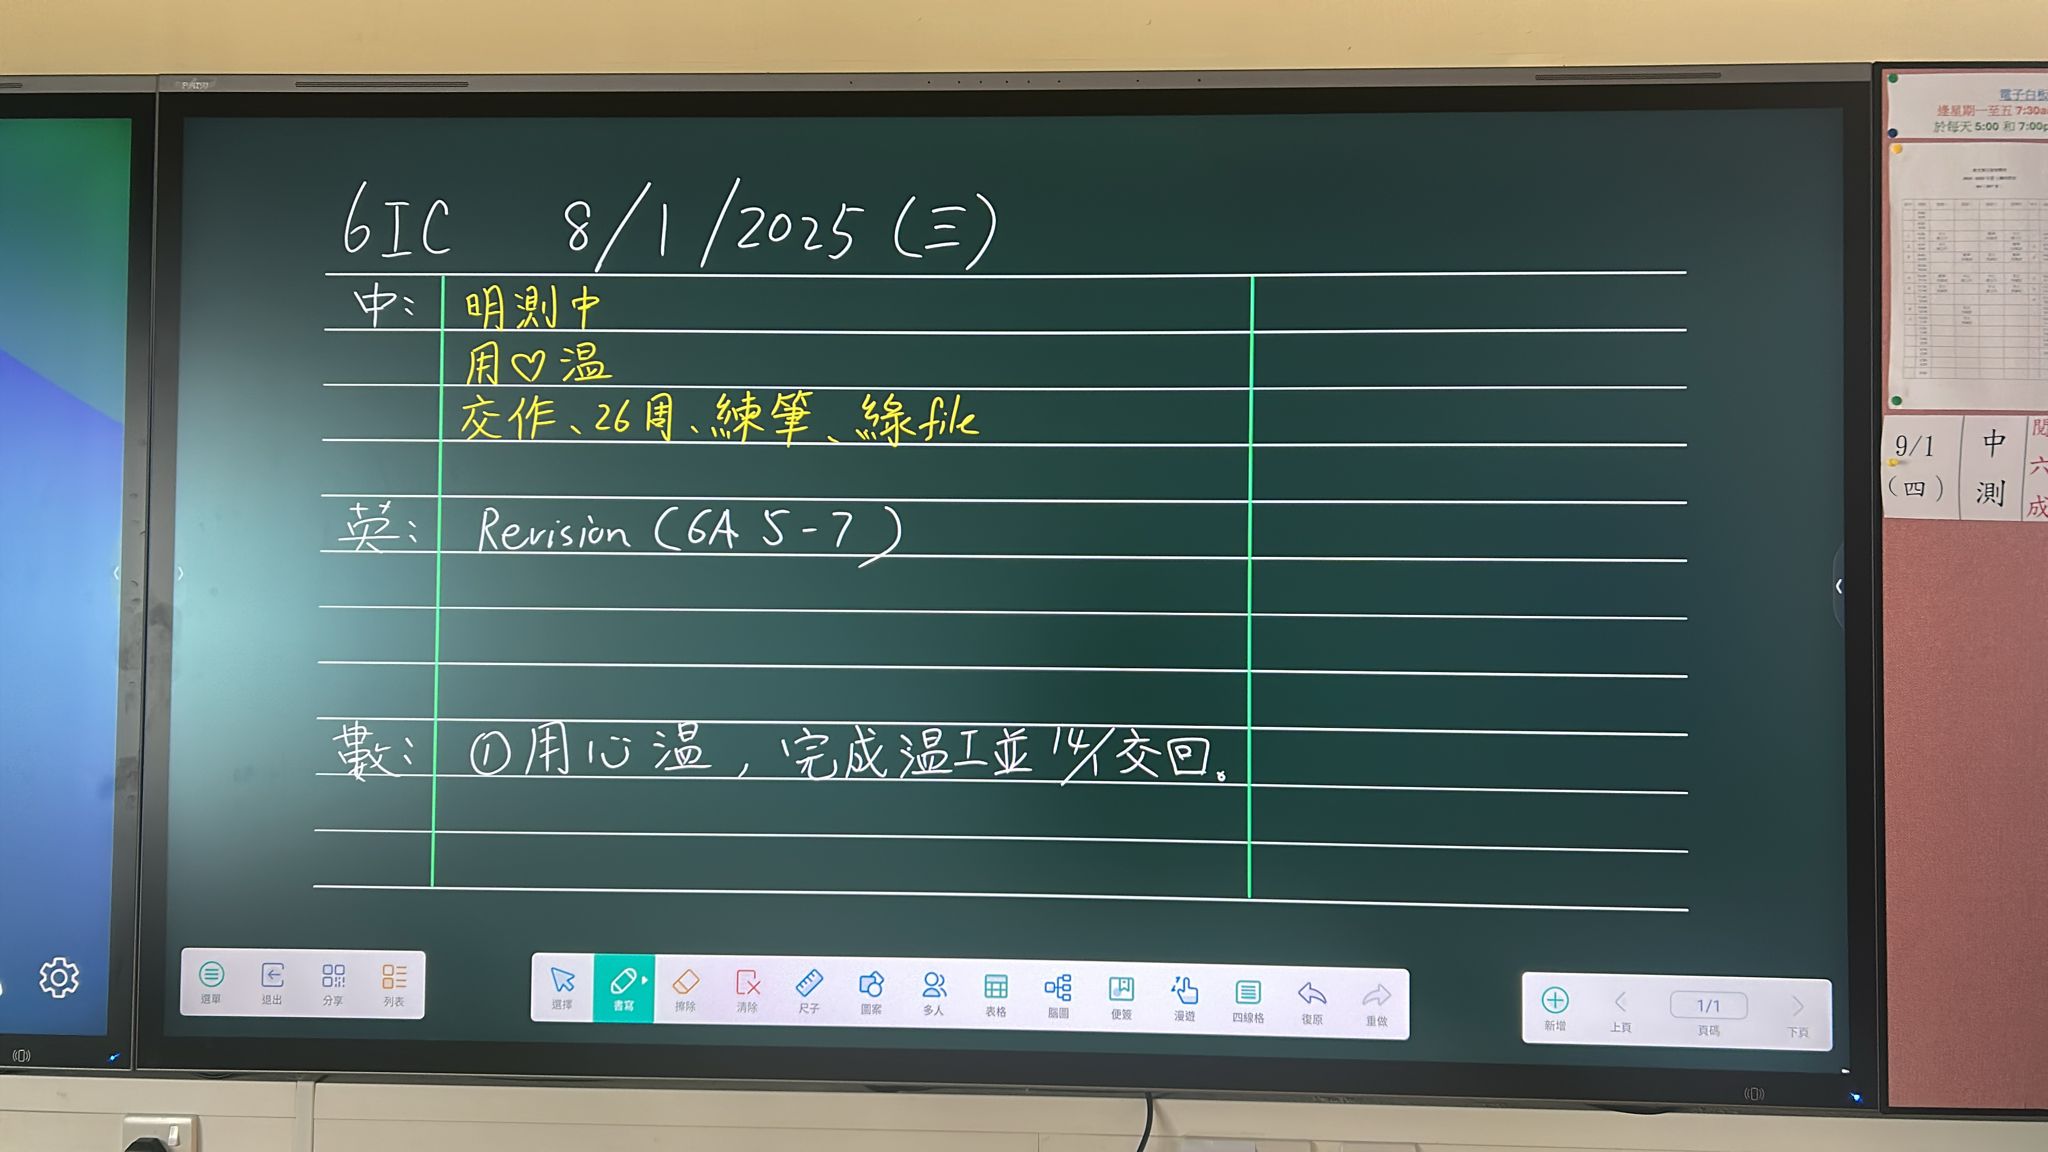 6IC 8/1/2025 (三)
中: 明測中
用♡溫
交作、26周、練筆、綠file
英: Revision (6A 5-7)
數: ①用心溫，完成溫工並14/1交回。
選單 退出 分享 列表
選擇 書寫 擦除 清除 尺子 圖案 多人 表格 腦圖 便簽 漫遊 四線格 復原 重做
新增 上頁 1/1 頁碼 下頁
電子白板
逢星期一至五 7:30a
於每天 5:00 和 7:00p
9/1
(四)
中測
閱六成